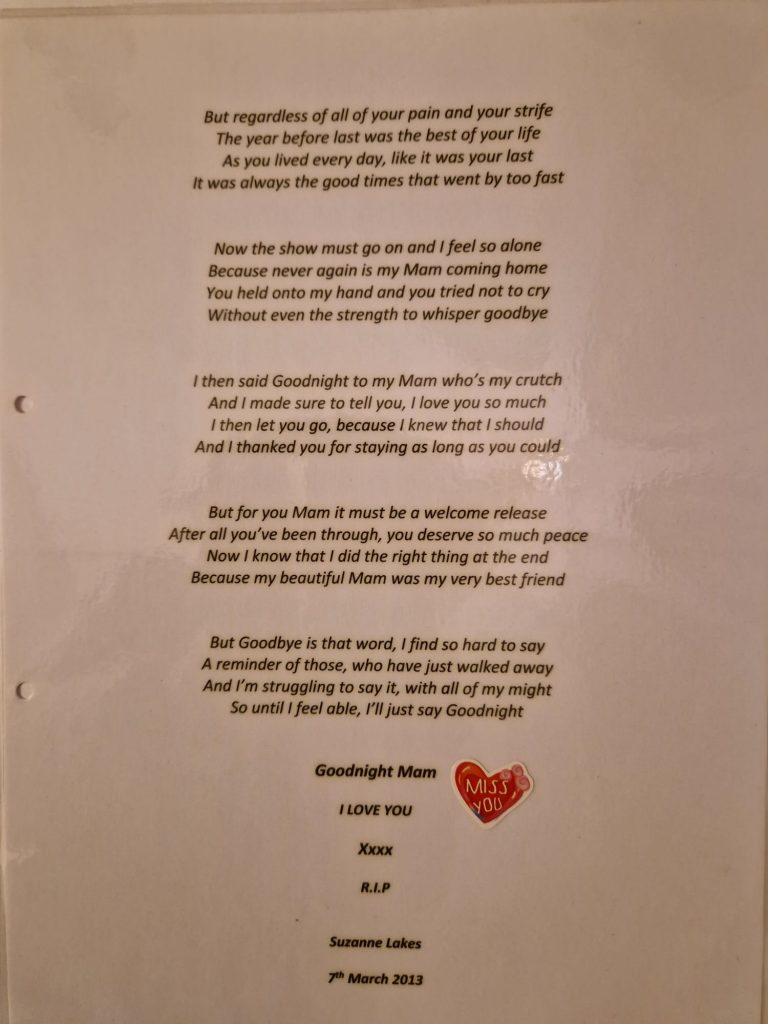 But regardless of all of your pain and your strife
The year before last was the best of your life
As you lived every day, like it was your last
It was always the good times that went by too fast
Now the show must go on and I feel so alone
Because never again is my Mam coming home
You held onto my hand and you tried not to cry
Without even the strength to whisper goodbye
I then said Goodnight to my Mam who's my crutch
And I made sure to tell you, I love you so much
I then let you go, because I knew that I should
And I thanked you for staying as long as you could
But for you Mam it must be a welcome release
After all you've been through, you deserve so much peace
Now I know that I did the right thing at the end
Because my beautiful Mam was my very best friend
But Goodbye is that word, I find so hard to say
A reminder of those, who have just walked away
And I'm struggling to say it, with all of my might
So until I feel able, I'll just say Goodnight
Goodnight Mam
MISS
YOU
I LOVE YOU
Xxxx
R.I.P
Suzanne Lakes
7th March 2013